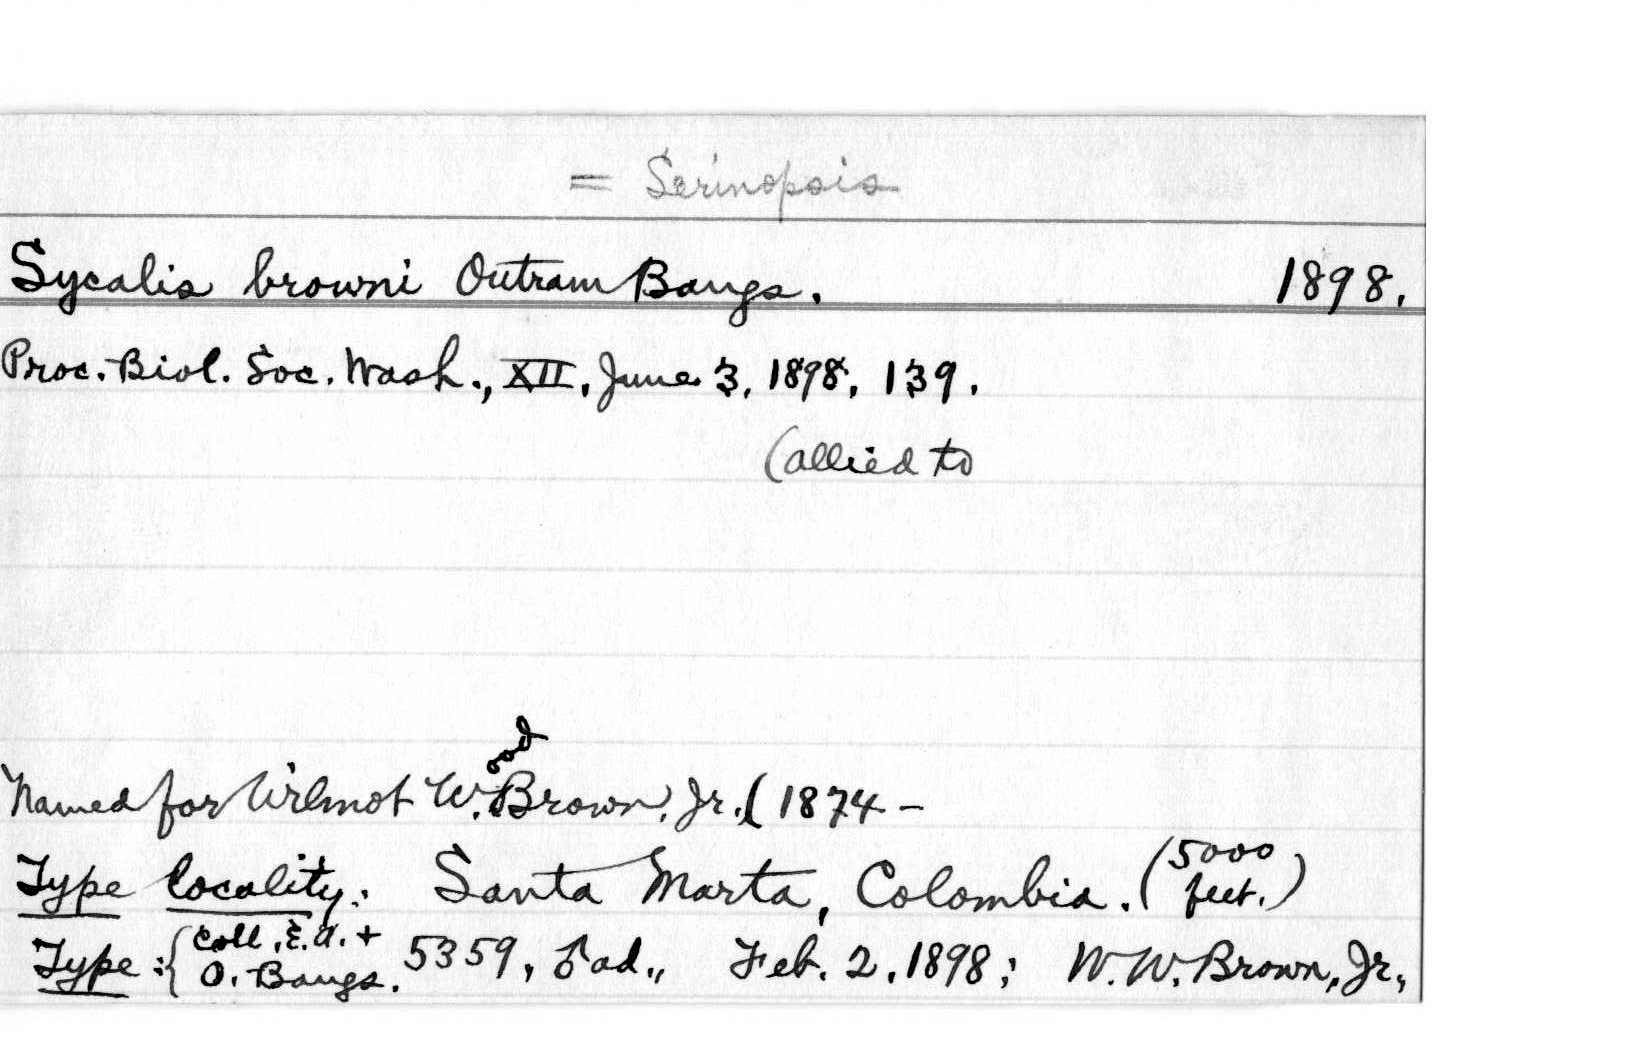 = Serinopsis
Sycalis browni Outram Bangs. 1898.
Proc. Biol. Soc. Wash., XII, June 3, 1898, 139.
(allied to
Named for Wilmot W. ood Brown, Jr. (1874 -
Type locality: Santa Marta, Colombia. (5000 feet.)
Type: { Coll. E. A. + O. Bangs. 5359, ♂ ad., Feb. 2, 1898; W. W. Brown, Jr.,